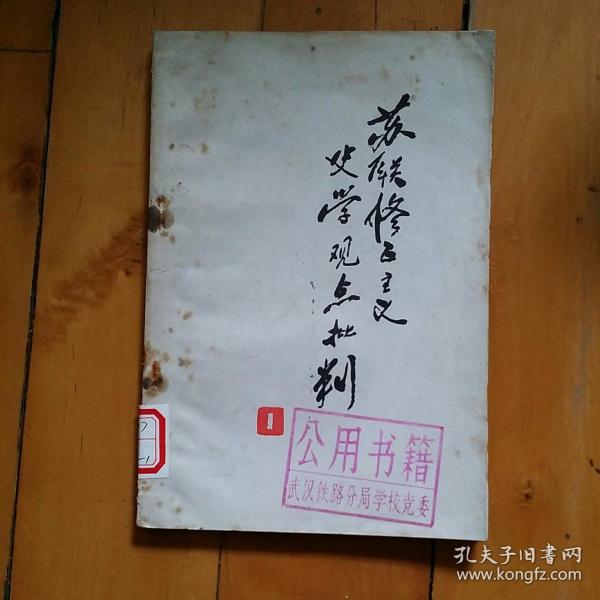 苏联修正主义
史学观点批判
1
公用书籍
武汉铁路分局学校党委
孔夫子旧书网
www.kongfz.com